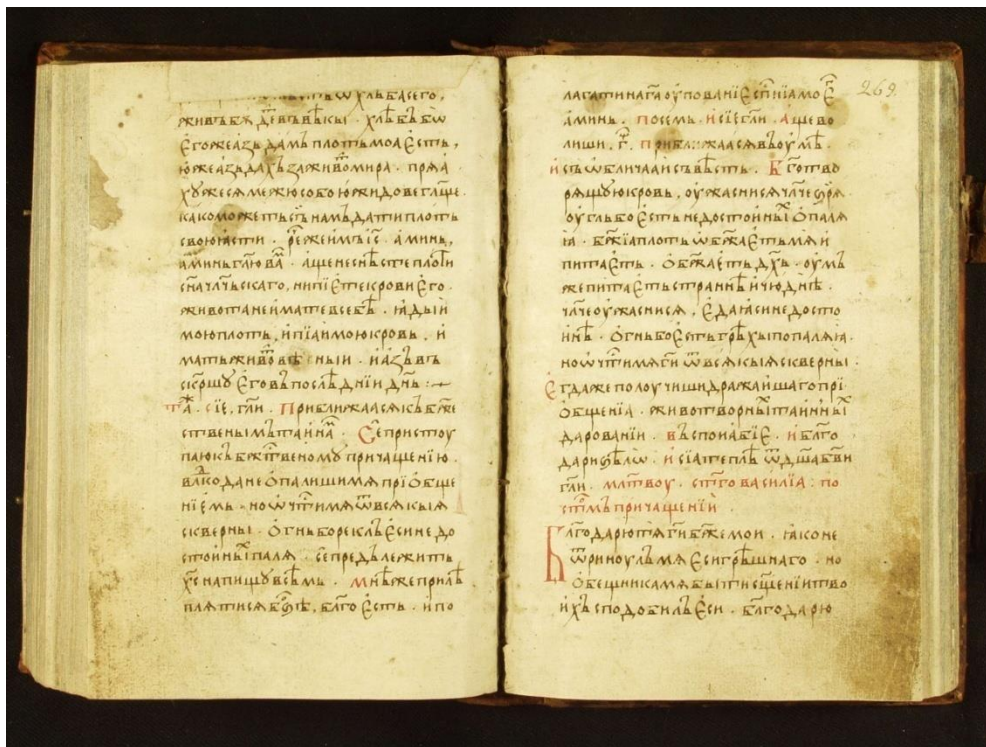 ѿ хлѣба сего,
живъ бꙋдетъ въ вѣкы · хлѣбъ бѡ
егоже азъ дамъ плоть моа есть,
юже азъ дахъ за живо мира · пря а
хꙋже ся межю собою жидове глще ·
како можеть съ намъ дати плоть
свою ясти · рече имъ іс · аминь,
аминь глю ва · аще не снѣсте плоти
сна члчьскаго, ни піете крови его ·
живота не имате в себѣ · ядыи
мою плоть, и піаи мою кровь, и
мать живо вѣчныи · и азъ въ
скршꙋ его въ послѣднїи днь :~
та · сіе, гли · Приближаася къ бже
ственымъ таина · Се пристоу
паю къ бжтвеномꙋ причащенїю ·
влко да не опалиши мя прїобще
нїемь · но ѡчти мя ѿ всякыя
скверны · огнь бо рекль еси не до
стоиныхъ паля · се предълежить
хс на пищꙋ всѣмь · мнѣ же прилѣ
плятися бгѹ, блго есть · и по
лагати на га оупованїе спнїа мое
269
аминь · посемь · и сіе гли · аще во
лиши, г · приближаася въ оумѣ ·
и съ ѡбличаа и съвѣсть · Бготво
рящꙋю кровь, оужаснися члче зря ·
оугль бо есть недостоиныхъ опаля
я · бжїа плоть и ѡбжаеть мя и
питаеть · обжаеть дхъ · оумъ
же питаеть страннѣ и чюднѣ ·
члче оужаснися, е да яси недосто
инѣ · огнь бо есть грѣхы попаляя ·
но ѡчти мя ги ѿ всякыя скверны ·
Егда же получиши дражаишаго прї
общенїа · животворныхъ таинныхъ
дарованїи · въспои абіе · и блго
дари ѕѣлѡ · и сїа теплѣ ѿ дша бви
гли · млтвоу · стго василїа : по
стмъ причащенїи ·
Блгодарю тя ги бже мои · яко не
ѿринꙋлъ мя еси грѣшнаго · но
общника мя быти сщенїи тво
ихъ сподобилъ еси · благодарю